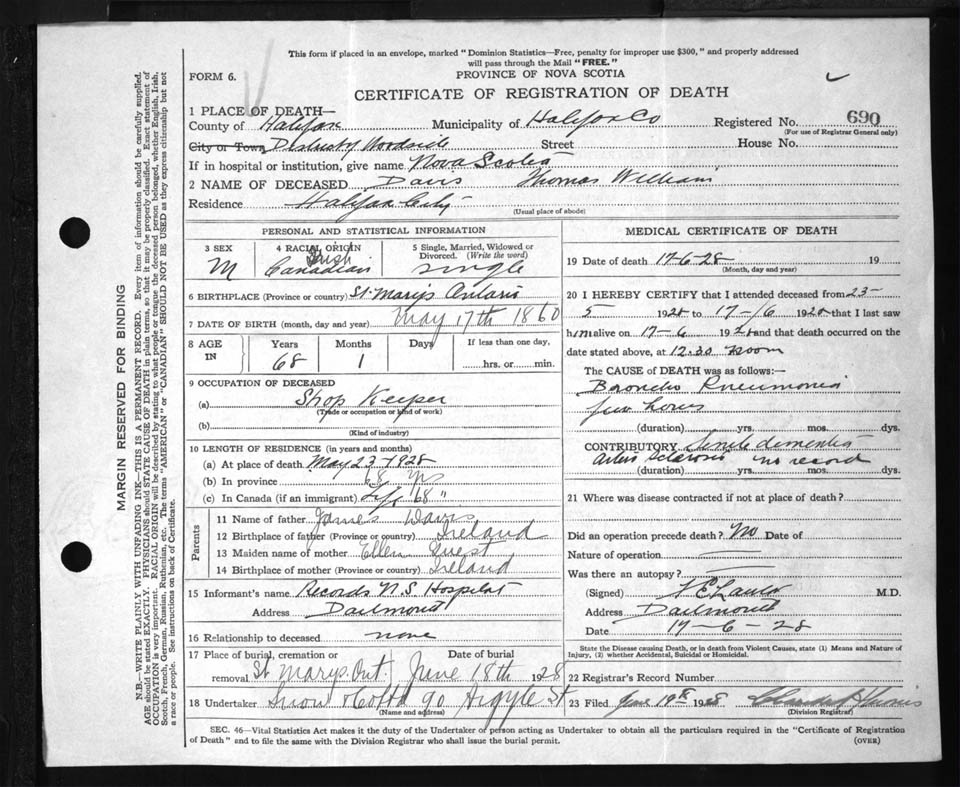 This form if placed in an envelope, marked "Dominion Statistics—Free, penalty for improper use $300," and properly addressed
will pass through the Mail "FREE."
FORM 6.
PROVINCE OF NOVA SCOTIA
CERTIFICATE OF REGISTRATION OF DEATH
1 PLACE OF DEATH—
County of Halifax Municipality of Halifax Co Registered No. 690
(For use of Registrar General only)
City or Town Woodside Street House No.
If in hospital or institution, give name Nova Scotia
2 NAME OF DECEASED Davis Thomas William
Residence Halifax City
(Usual place of abode)
PERSONAL AND STATISTICAL INFORMATION
3 SEX
M
4 RACIAL ORIGIN
Irish
Canadian
5 Single, Married, Widowed or Divorced. (Write the word)
single
6 BIRTHPLACE (Province or country) St. Marys Ontario
7 DATE OF BIRTH (month, day and year) May 17th 1860
8 AGE IN Years Months Days If less than one day,
68 1 hrs. or min.
9 OCCUPATION OF DECEASED
(a) Shop Keeper
(Trade or occupation or kind of work)
(b)
(Kind of industry)
10 LENGTH OF RESIDENCE (in years and months)
(a) At place of death May 23-1928
(b) In province 68 yrs
(c) In Canada (if an immigrant) Life 68 "
Parents
11 Name of father James Davis
12 Birthplace of father (Province or country) Ireland
13 Maiden name of mother Ellen Guest
14 Birthplace of mother (Province or country) Ireland
15 Informant's name Records N.S. Hospital
Address Dartmouth
16 Relationship to deceased none
17 Place of burial, cremation or Date of burial
removal St Marys. Ont. June 18th 1928
18 Undertaker Snow & Co Ltd 90 Argyle St
(Name and address)
MEDICAL CERTIFICATE OF DEATH
19 Date of death 17-6-28 19
(Month, day and year)
20 I HEREBY CERTIFY that I attended deceased from 23-
5 1928 to 17-6 1928 that I last saw
him alive on 17-6 1928 and that death occurred on the
date stated above, at 12.30 noon
The CAUSE of DEATH was as follows:—
Broncho Pneumonia
few hours
(duration) yrs. mos. dys.
CONTRIBUTORY Senile dementia
Arterio Sclerosis no record
(duration) yrs. mos. dys.
21 Where was disease contracted if not at place of death?
Did an operation precede death? No Date of
Nature of operation
Was there an autopsy?
(Signed) M.D.
Address Dartmouth
Date 17-6-28
State the Disease causing Death, or in death from Violent Causes, state (1) Means and Nature of Injury, (2) whether Accidental, Suicidal or Homicidal.
22 Registrar's Record Number
23 Filed June 19th 1928
(Division Registrar)
SEC. 46—Vital Statistics Act makes it the duty of the Undertaker or person acting as Undertaker to obtain all the particulars required in the "Certificate of Registration
of Death" and to file the same with the Division Registrar who shall issue the burial permit.
(OVER)
MARGIN RESERVED FOR BINDING
N.B.—WRITE PLAINLY WITH UNFADING INK—THIS IS A PERMANENT RECORD. Every item of information should be carefully supplied.
AGE should be stated EXACTLY. PHYSICIANS should STATE CAUSE OF DEATH in plain terms, so that it may be properly classified. Exact statement of
OCCUPATION is very important. RACIAL ORIGIN will be described by stating to what people or tongue the deceased person belonged, whether English, Irish,
Scotch, French, German, Russian, Ruthenian, etc. The terms "AMERICAN" or "CANADIAN" SHOULD NOT BE USED as they express citizenship but not
a race or people. See instructions on back of Certificate.